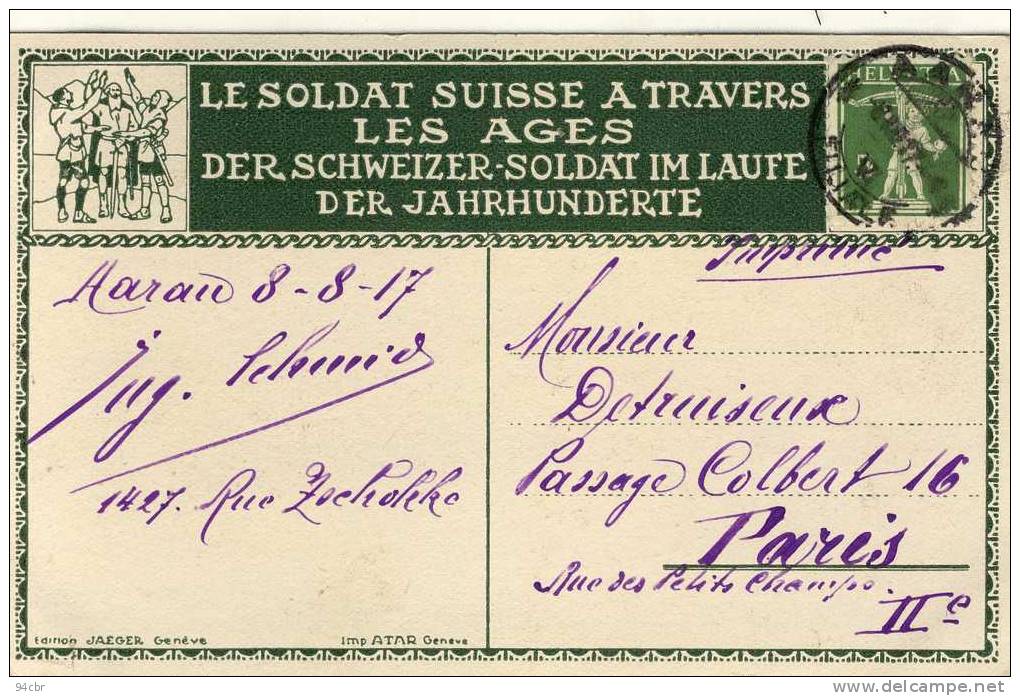 LE SOLDAT SUISSE A TRAVERS
LES AGES
DER SCHWEIZER-SOLDAT IM LAUFE
DER JAHRHUNDERTE
HELVETIA
Imprimé
Aarau 8-8-17
Jug. Schmid
1427. Rue Zschokke
Monsieur
Detruiseux
Passage Colbert 16
Paris
Rue des Petits Champs.
IIe
Edition JAEGER Genève
Imp ATAR Genève
94cbr
delcampe.net